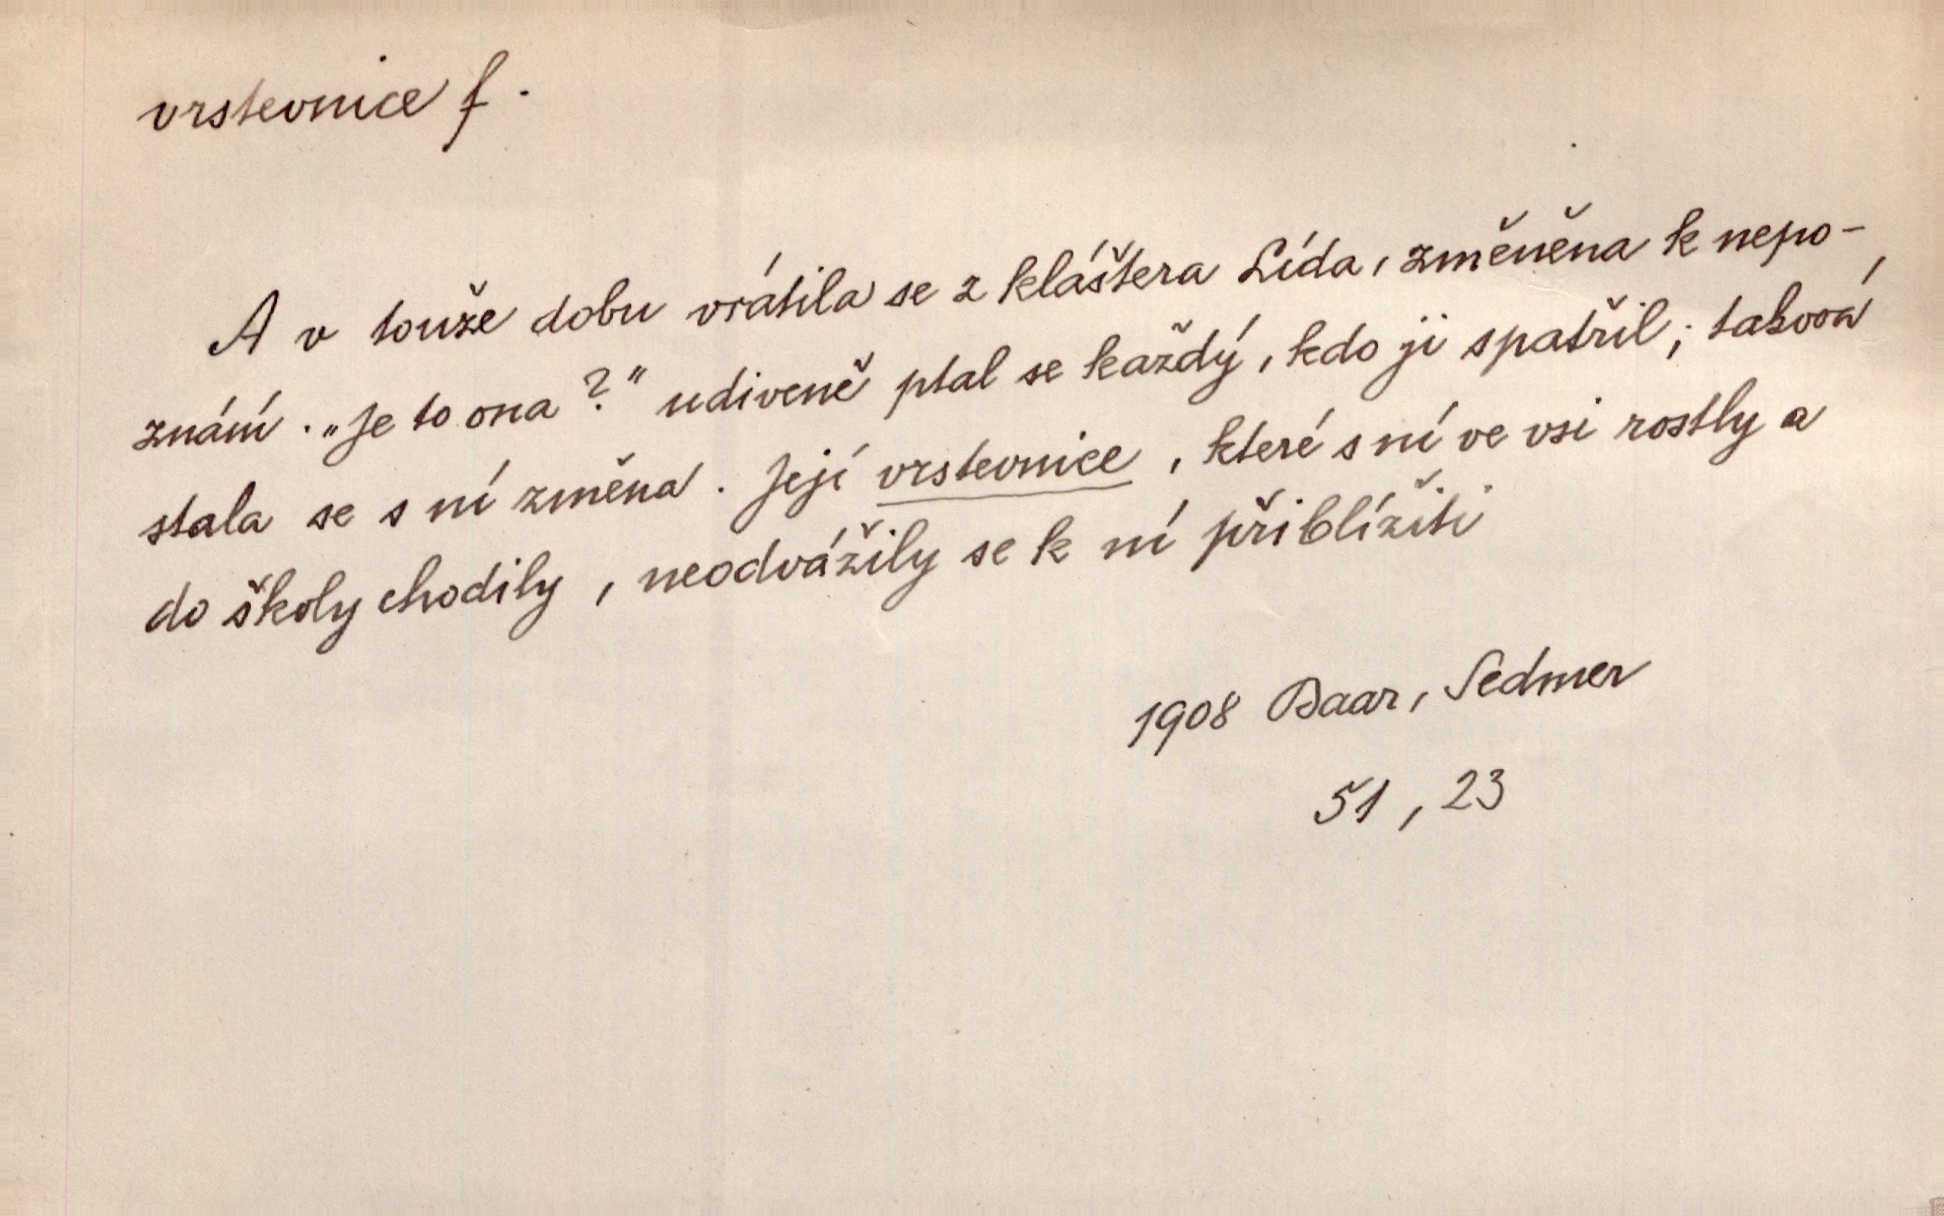 vrstevnice f.
A v touže dobu vrátila se z kláštera Lída, změněna k nepo-
znání. „Je to ona?" udiveně ptal se každý, kdo ji spatřil; taková
stala se s ní změna. Její vrstevnice, které s ní ve vsi rostly a
do školy chodily, neodvážily se k ní přiblížiti
1908 Baar, Sedmer
51, 23